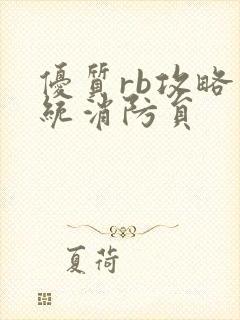 優質rb攻略
統消防員
夏荷